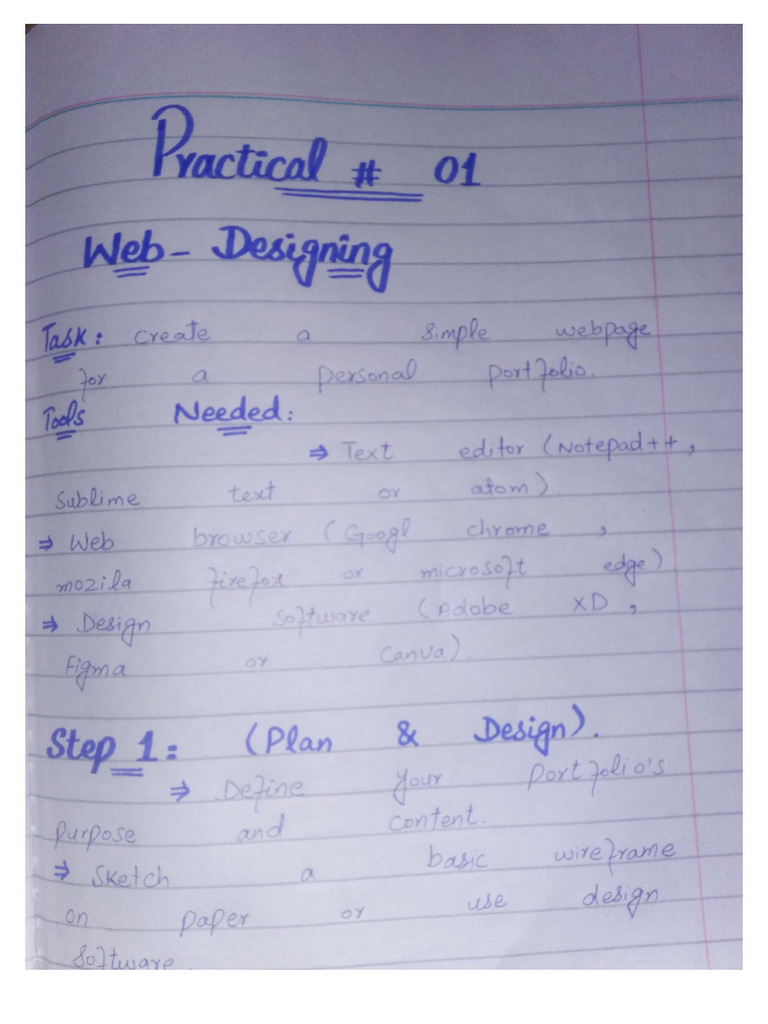 Practical # 01
Web- Designing
Task: create a simple webpage
for a personal portfolio.
Tools Needed:
⇒ Text editor (Notepad++,
Sublime text or atom).
⇒ Web browser (Googl chrome ,
mozila firefox or microsoft edge)
⇒ Design software (Adobe XD ,
Figma or Canva).
Step 1: (Plan & Design).
⇒ Define your portfolio's
purpose and content.
⇒ Sketch a basic wireframe
on paper or use design
software.